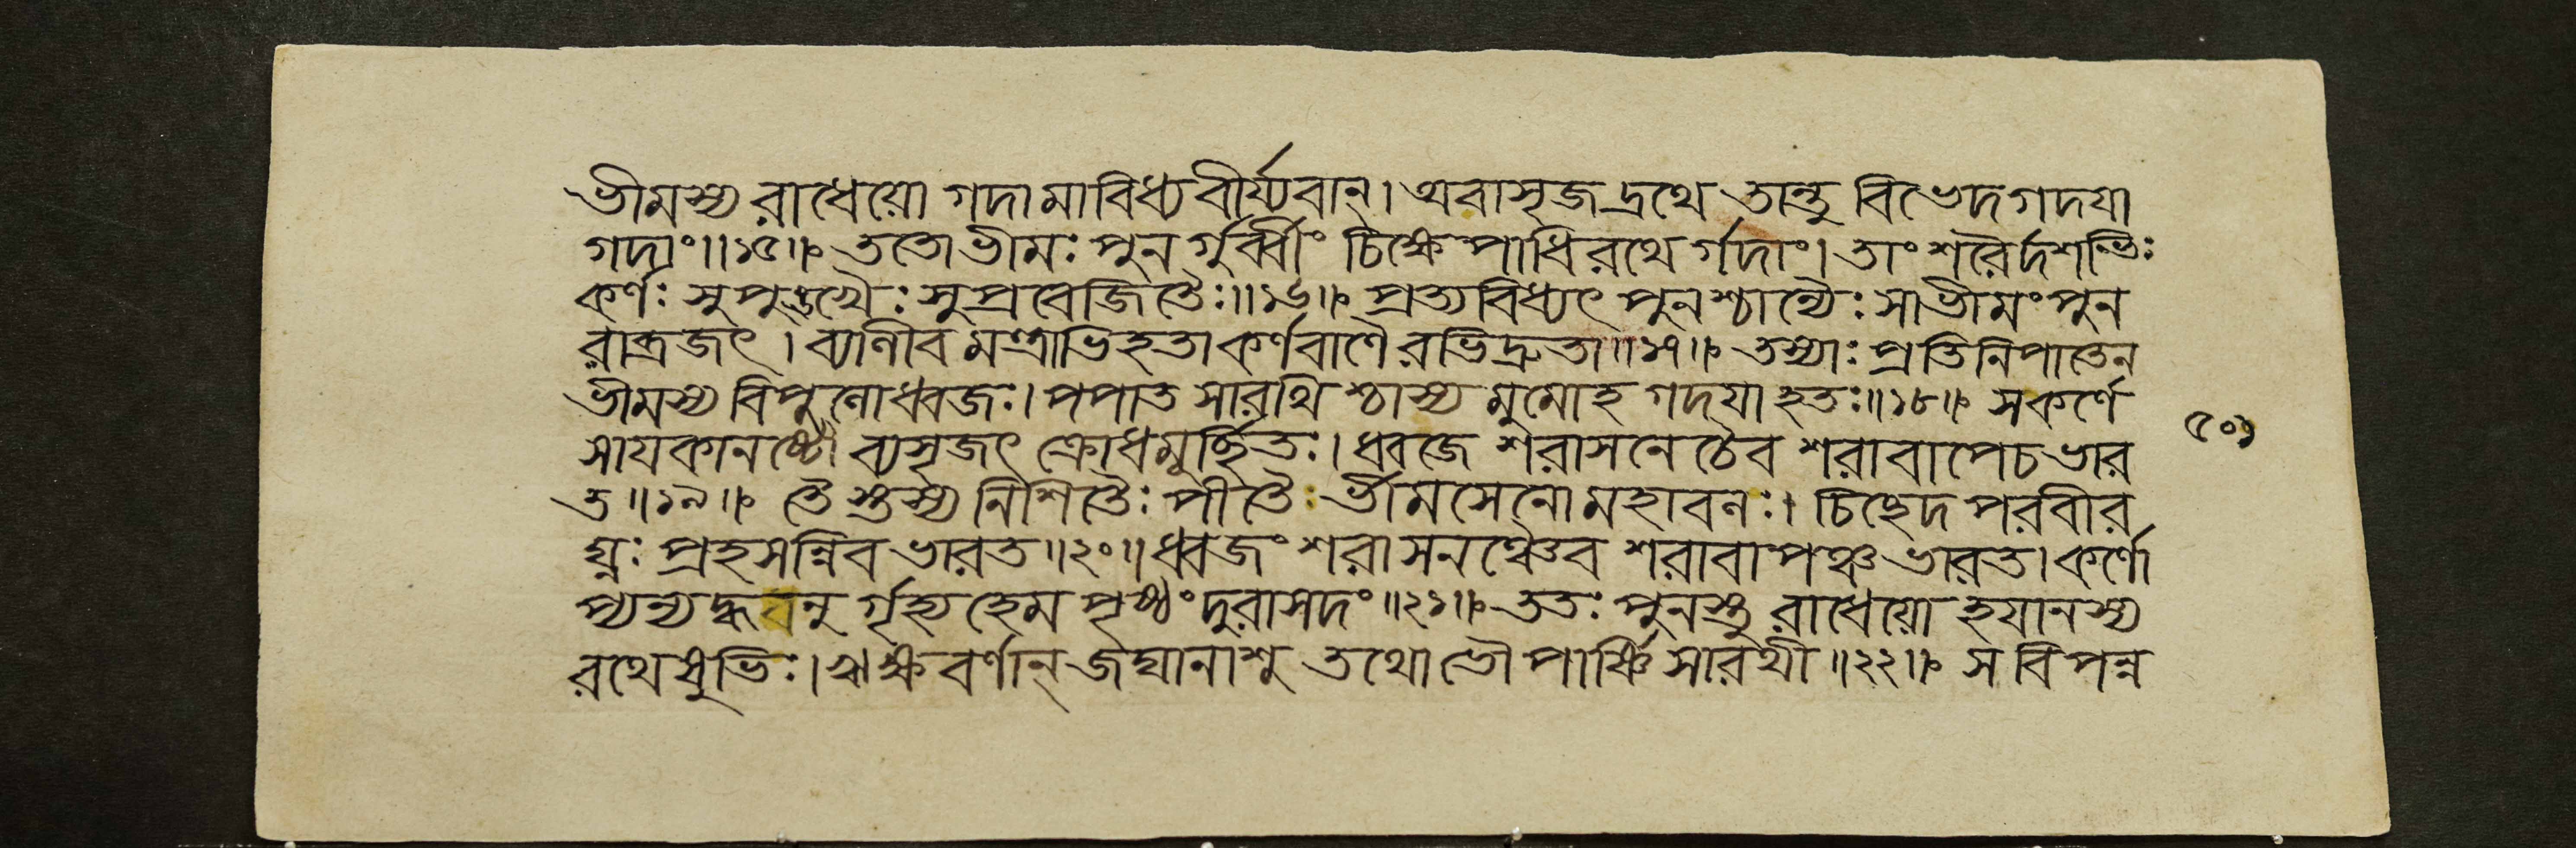 ভীমস্য রাধেয়ো গদামাবিধ্য বীর্য্যবান্। অবাসৃজদ্রথে তান্তু বিভেদ গদযা
গদাং॥১৫॥ ততো ভীমঃ পুনর্গুর্ব্বীং চিক্ষেপাধিরথের্গদাং। তাং শরৈর্দশভিঃ
কর্ণঃ সুপুঙ্খৈঃ সুপ্রবেজিতৈঃ॥১৬॥ প্রত্যবিধ্যৎ পুনশ্চান্যৈঃ সা ভীমং পুন
রাব্রজৎ। ব্যালীব মন্ত্রাভিহতা কর্ণবাণৈরভিদ্রুতা॥১৭॥ তস্যাঃ প্রতিনিপাতেন
ভীমস্য বিপুলো ধ্বজঃ। পপাত সারথিশ্চাস্য মুমোহ গদযা হতঃ॥১৮॥ স কর্ণে
সাযকানষ্টৌ ব্যসৃজৎ ক্রোধমূর্চ্ছিতঃ। ধ্বজে শরাসনে চৈব শরাবাপে চ ভার
ত॥১৯॥ তৈস্তস্য নিশিতৈঃ পীতৈঃ ভীমসেনো মহাবলঃ। চিচ্ছেদ পরবীর
ঘ্নঃ প্রহসন্নিব ভারত॥২০॥ ধ্বজং শরাসনঞ্চৈব শরাবাপঞ্চ ভারত। কর্ণো
প্যন্যদ্ধনু র্গৃহ্য হেমপৃষ্ঠং দুরাসদং॥২১॥ ততঃ পুনস্তু রাধেয়ো হযানস্য
রথেষুভিঃ। ঋক্ষবর্ণান্ জঘানাশু তথোভৌ পার্ষ্ণিসারথী॥২২॥ স বিপন্ন
৫০১